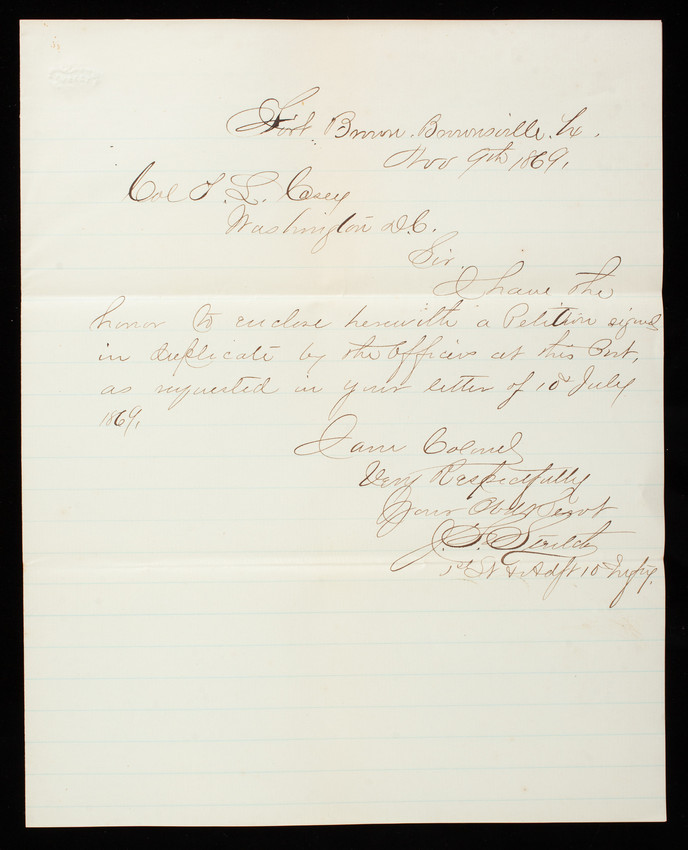 Fort Brown. Brownsville. Tx.
Nov 9th 1869.
Col T. L. Casey
Washington D.C.
Sir.
I have the
honor to enclose herewith a Petition signed
in duplicate by the Officers at this Post,
as requested in your letter of 10" July
1869.
I am Colonel
Very Respectfully
Your Obdt Servt
J. F.
1st Lt & Adjt 10" Infty.